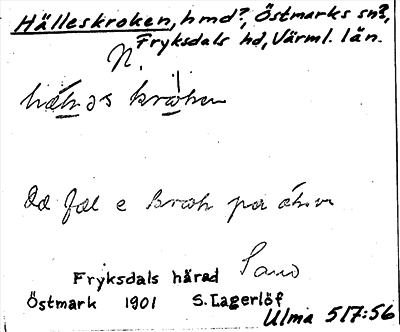 Hälleskroken, hmd?, Östmarks sn?,
Fryksdals hd, Värml. län.
N.
kroken
Da fal e krok på
Fryksdals härad Sand
Östmark 1901 S. Lagerlöf
Ulma 517:56